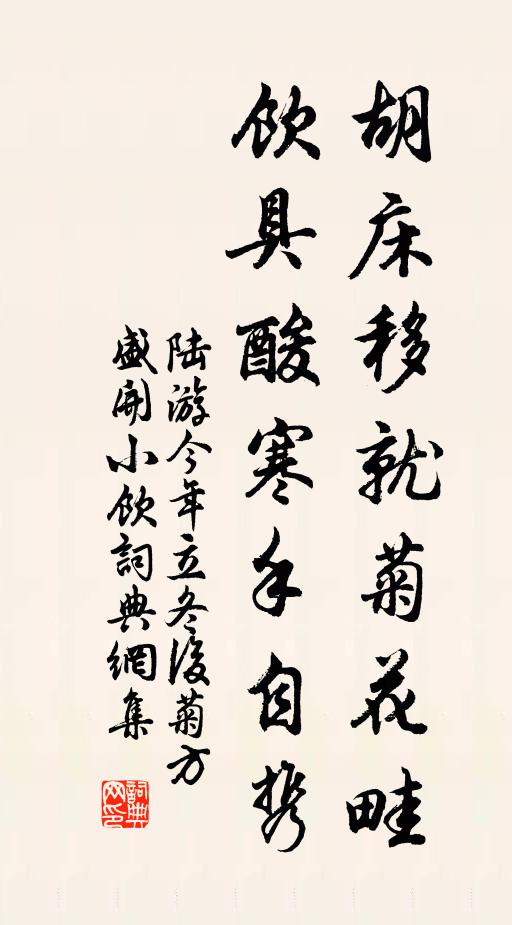 胡床移就菊花畦
饮具酸寒手自携
陆游今年立冬后菊方
盛開小饮詞典網集
詞典
网印